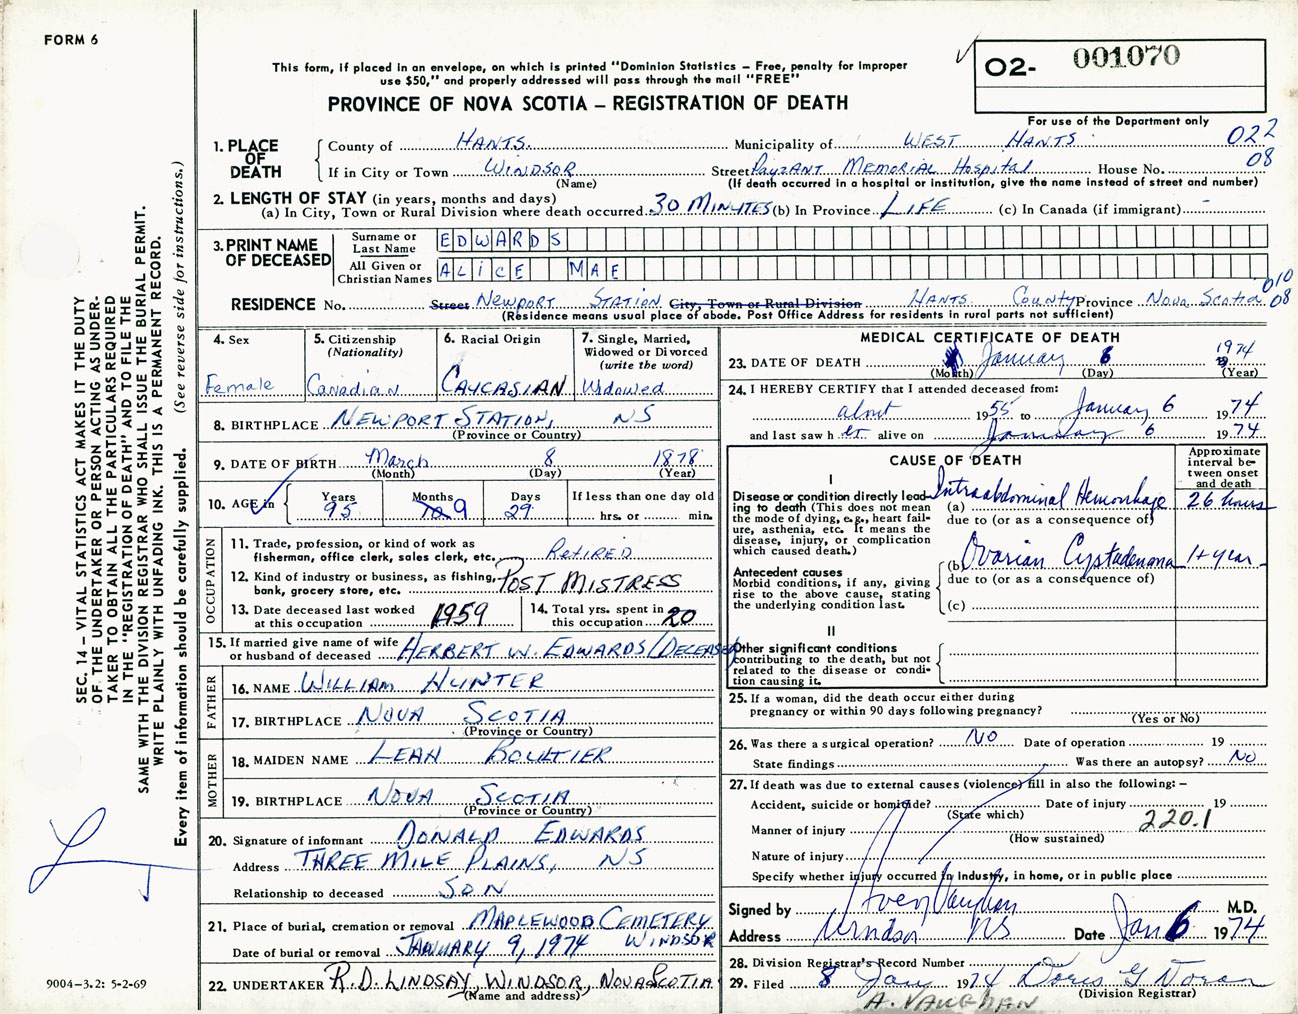 FORM 6
This form, if placed in an envelope, on which is printed "Dominion Statistics – Free, penalty for improper
use $50," and properly addressed will pass through the mail "FREE"
PROVINCE OF NOVA SCOTIA – REGISTRATION OF DEATH
02- 001070
For use of the Department only
022
08
1. PLACE OF DEATH
County of HANTS. Municipality of WEST HANTS
If in City or Town WINDSOR Street Payzant MEMORIAL Hospital House No.
(Name) (If death occurred in a hospital or institution, give the name instead of street and number)
2. LENGTH OF STAY (in years, months and days)
(a) In City, Town or Rural Division where death occurred 30 MINUTES (b) In Province LIFE (c) In Canada (if immigrant) -
3. PRINT NAME OF DECEASED
Surname or Last Name EDWARDS
All Given or Christian Names ALICE MAE
010
08
RESIDENCE No. Street Newport STATION City, Town or Rural Division HANTS County Province Nova Scotia
(Residence means usual place of abode. Post Office Address for residents in rural parts not sufficient)
4. Sex
Female
5. Citizenship
(Nationality)
Canadian
6. Racial Origin
CAUCASIAN
7. Single, Married,
Widowed or Divorced
(write the word)
Widowed
8. BIRTHPLACE NEWPORT STATION, NS
(Province or Country)
9. DATE OF BIRTH March 8 1878
(Month) (Day) (Year)
10. AGE in
Years Months Days If less than one day old
95 10 9 29 hrs. or min.
OCCUPATION
11. Trade, profession, or kind of work as
fisherman, office clerk, sales clerk, etc. RETIRED
12. Kind of industry or business, as fishing,
bank, grocery store, etc. POST MISTRESS
13. Date deceased last worked
at this occupation 1959
14. Total yrs. spent in
this occupation 20
15. If married give name of wife
or husband of deceased HERBERT W. EDWARDS (DECEASED)
FATHER
16. NAME WILLIAM HUNTER
17. BIRTHPLACE NOVA SCOTIA
(Province or Country)
MOTHER
18. MAIDEN NAME LEAH BOUTIER
19. BIRTHPLACE NOVA SCOTIA
(Province or Country)
20. Signature of informant DONALD EDWARDS
Address THREE MILE PLAINS, NS
Relationship to deceased SON
21. Place of burial, cremation or removal MAPLEWOOD CEMETERY
Date of burial or removal JANUARY 9, 1974 WINDSOR
22. UNDERTAKER R.D. LINDSAY, WINDSOR, NOVA SCOTIA
(Name and address)
MEDICAL CERTIFICATE OF DEATH
23. DATE OF DEATH January 6 1974
(Month) (Day) (Year)
24. I HEREBY CERTIFY that I attended deceased from:
about 1955 to January 6 1974
and last saw her alive on January 6 1974.
CAUSE OF DEATH
Approximate
interval be-
tween onset
and death
I
Disease or condition directly lead-
ing to death (This does not mean
the mode of dying, e.g., heart fail-
ure, asthenia, etc. It means the
disease, injury, or complication
which caused death.)
(a) Intraabdominal Hemorrhage 26 hours
due to (or as a consequence of)
Antecedent causes
Morbid conditions, if any, giving
rise to the above cause, stating
the underlying condition last.
(b) Ovarian Cystadenoma 1+ year
due to (or as a consequence of)
(c)
II
Other significant conditions
contributing to the death, but not
related to the disease or condi-
tion causing it.
25. If a woman, did the death occur either during
pregnancy or within 90 days following pregnancy?
(Yes or No)
26. Was there a surgical operation? NO Date of operation 19
State findings Was there an autopsy? NO
27. If death was due to external causes (violence) fill in also the following: –
Accident, suicide or homicide? Date of injury 19
(State which)
Manner of injury 220.1
(How sustained)
Nature of injury
Specify whether injury occurred in industry, in home, or in public place
Signed by Vaughan M.D.
Address Windsor NS Date Jan 6 1974
28. Division Registrar's Record Number
29. Filed 8 Jan 1974 Doris G
(Division Registrar)
A. VAUGHAN
SEC. 14 – VITAL STATISTICS ACT MAKES IT THE DUTY
OF THE UNDERTAKER OR PERSON ACTING AS UNDER-
TAKER TO OBTAIN ALL THE PARTICULARS REQUIRED
IN THE "REGISTRATION OF DEATH" AND TO FILE THE
SAME WITH THE DIVISION REGISTRAR WHO SHALL ISSUE THE BURIAL PERMIT.
WRITE PLAINLY WITH UNFADING INK. THIS IS A PERMANENT RECORD.
Every item of information should be carefully supplied. (See reverse side for instructions.)
9004-3.2: 5-2-69